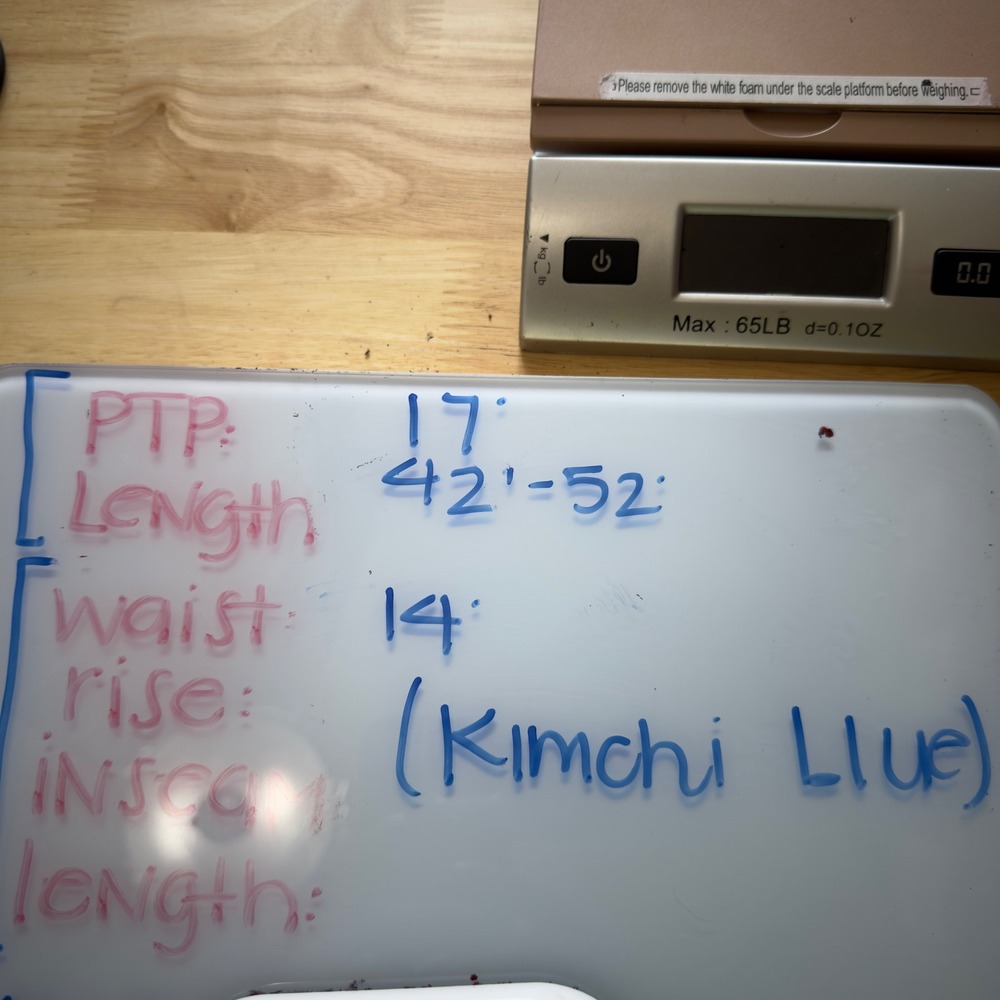 Please remove the white foam under the scale platform before weighing.
kg lb
0.0
Max : 65LB d=0.1OZ
PTP: 17"
LENgth 42"-52"
waist: 14"
rise:
(Kimchi Llue)
iNseam
leNgth: